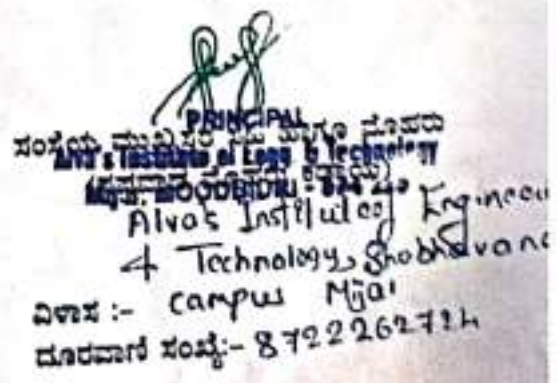 PRINCIPAL
ಸಂಸ್ಥೆಯ ಮುಖ್ಯಸ್ಥರ ಸಹಿ ಹಾಗೂ ಮೊಹರು
Alva's Institute of Engg. & Technology
Mijar, MOODBIDRI - 574 225
Alva's Institute of Engineeri
& Technology, Shobhavana
ವಿಳಾಸ :- campus Mijar
ದೂರವಾಣಿ ಸಂಖ್ಯೆ:- 8722262724